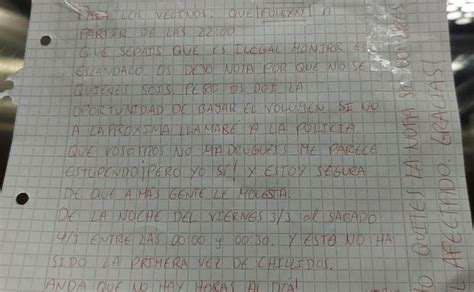 PARA LOS VECINOS QUE FOLLYN A
PARTIR DE LAS 22:00
QUE SEPAIS QUE ES ILEGAL MONTAR ES
ESCANDALO OS DEJO NOTA POR QUE NO SE
QUIENES SOIS PERO OS DOI LA
OPORTUNIDAD DE BAJAR EL VOLUMEN SI NO
A LA PROXIMA LLAMARE YA A LA POLICIA
QUE VOSOTROS NO MADRUGUEIS ME PARECE
ESTUPENDO ¡PERO YO SI! Y ESTOY SEGURA
DE QUE A MAS GENTE LE MOLESTA.
DE LA NOCHE DEL VIERNES 3/3 al SABADO
4/3 ENTRE LAS 00:00 y 00:30. Y ESTO NO HA
SIDO LA PRIMERA VEZ DE CHILLIDOS.
ANDA QUE NO HAY HORAS AL DIA!
NO QUITES LA NOTA
AFECTADO. GRACIAS!